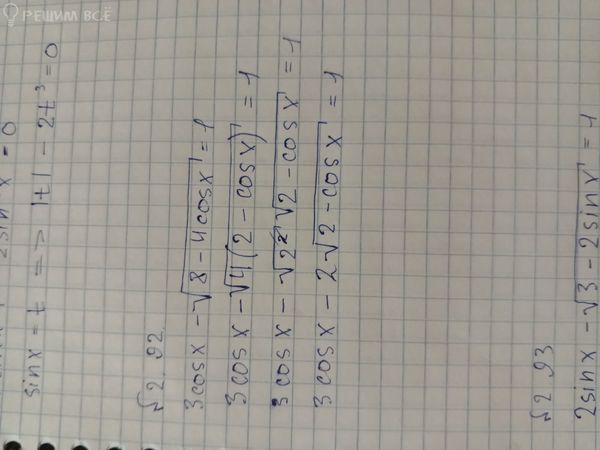 РЕШИМ ВСЁ
sin x = t => |t| - 2t³ = 0
√2.92.
3cosx - √8 - 4cosx = 1
3cosx - √4(2 - cosx) = 1
3cosx - √2² √2 - cosx = 1
3cosx - 2√2 - cosx = 1
√2.93
2sinx - √3 - 2sinx = 1